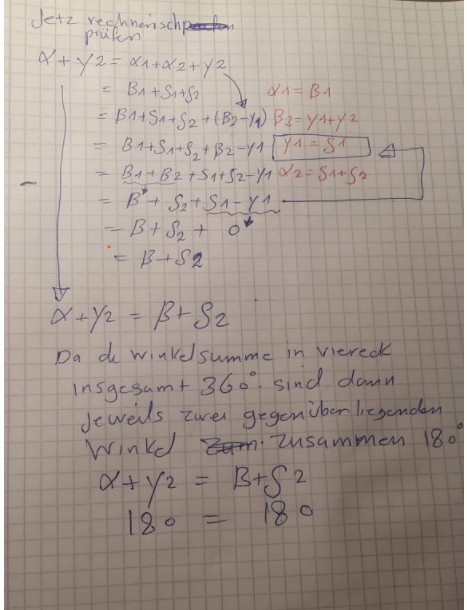 Jetz rechnerisch
prüfen
α + γ2 = α1+α2+γ2
= β1+δ1+δ2 α1 = β1
= β1+δ1+δ2+(β2-γ1) β2=γ1+γ2
= β1+δ1+δ2+β2-γ1 γ1 = δ1
= β1+β2+δ1+δ2-γ1 α2=δ1+δ2
= β + δ2+δ1-γ1
= β+δ2 + 0
= β+δ2
α+γ2 = β+δ2
Da de Winkelsumme in viereck
insgesamt 360°. sind dann
jeweils zwei gegenüberliegenden
Winkel zusammen 180°
α+γ2 = β+δ2
180 = 180